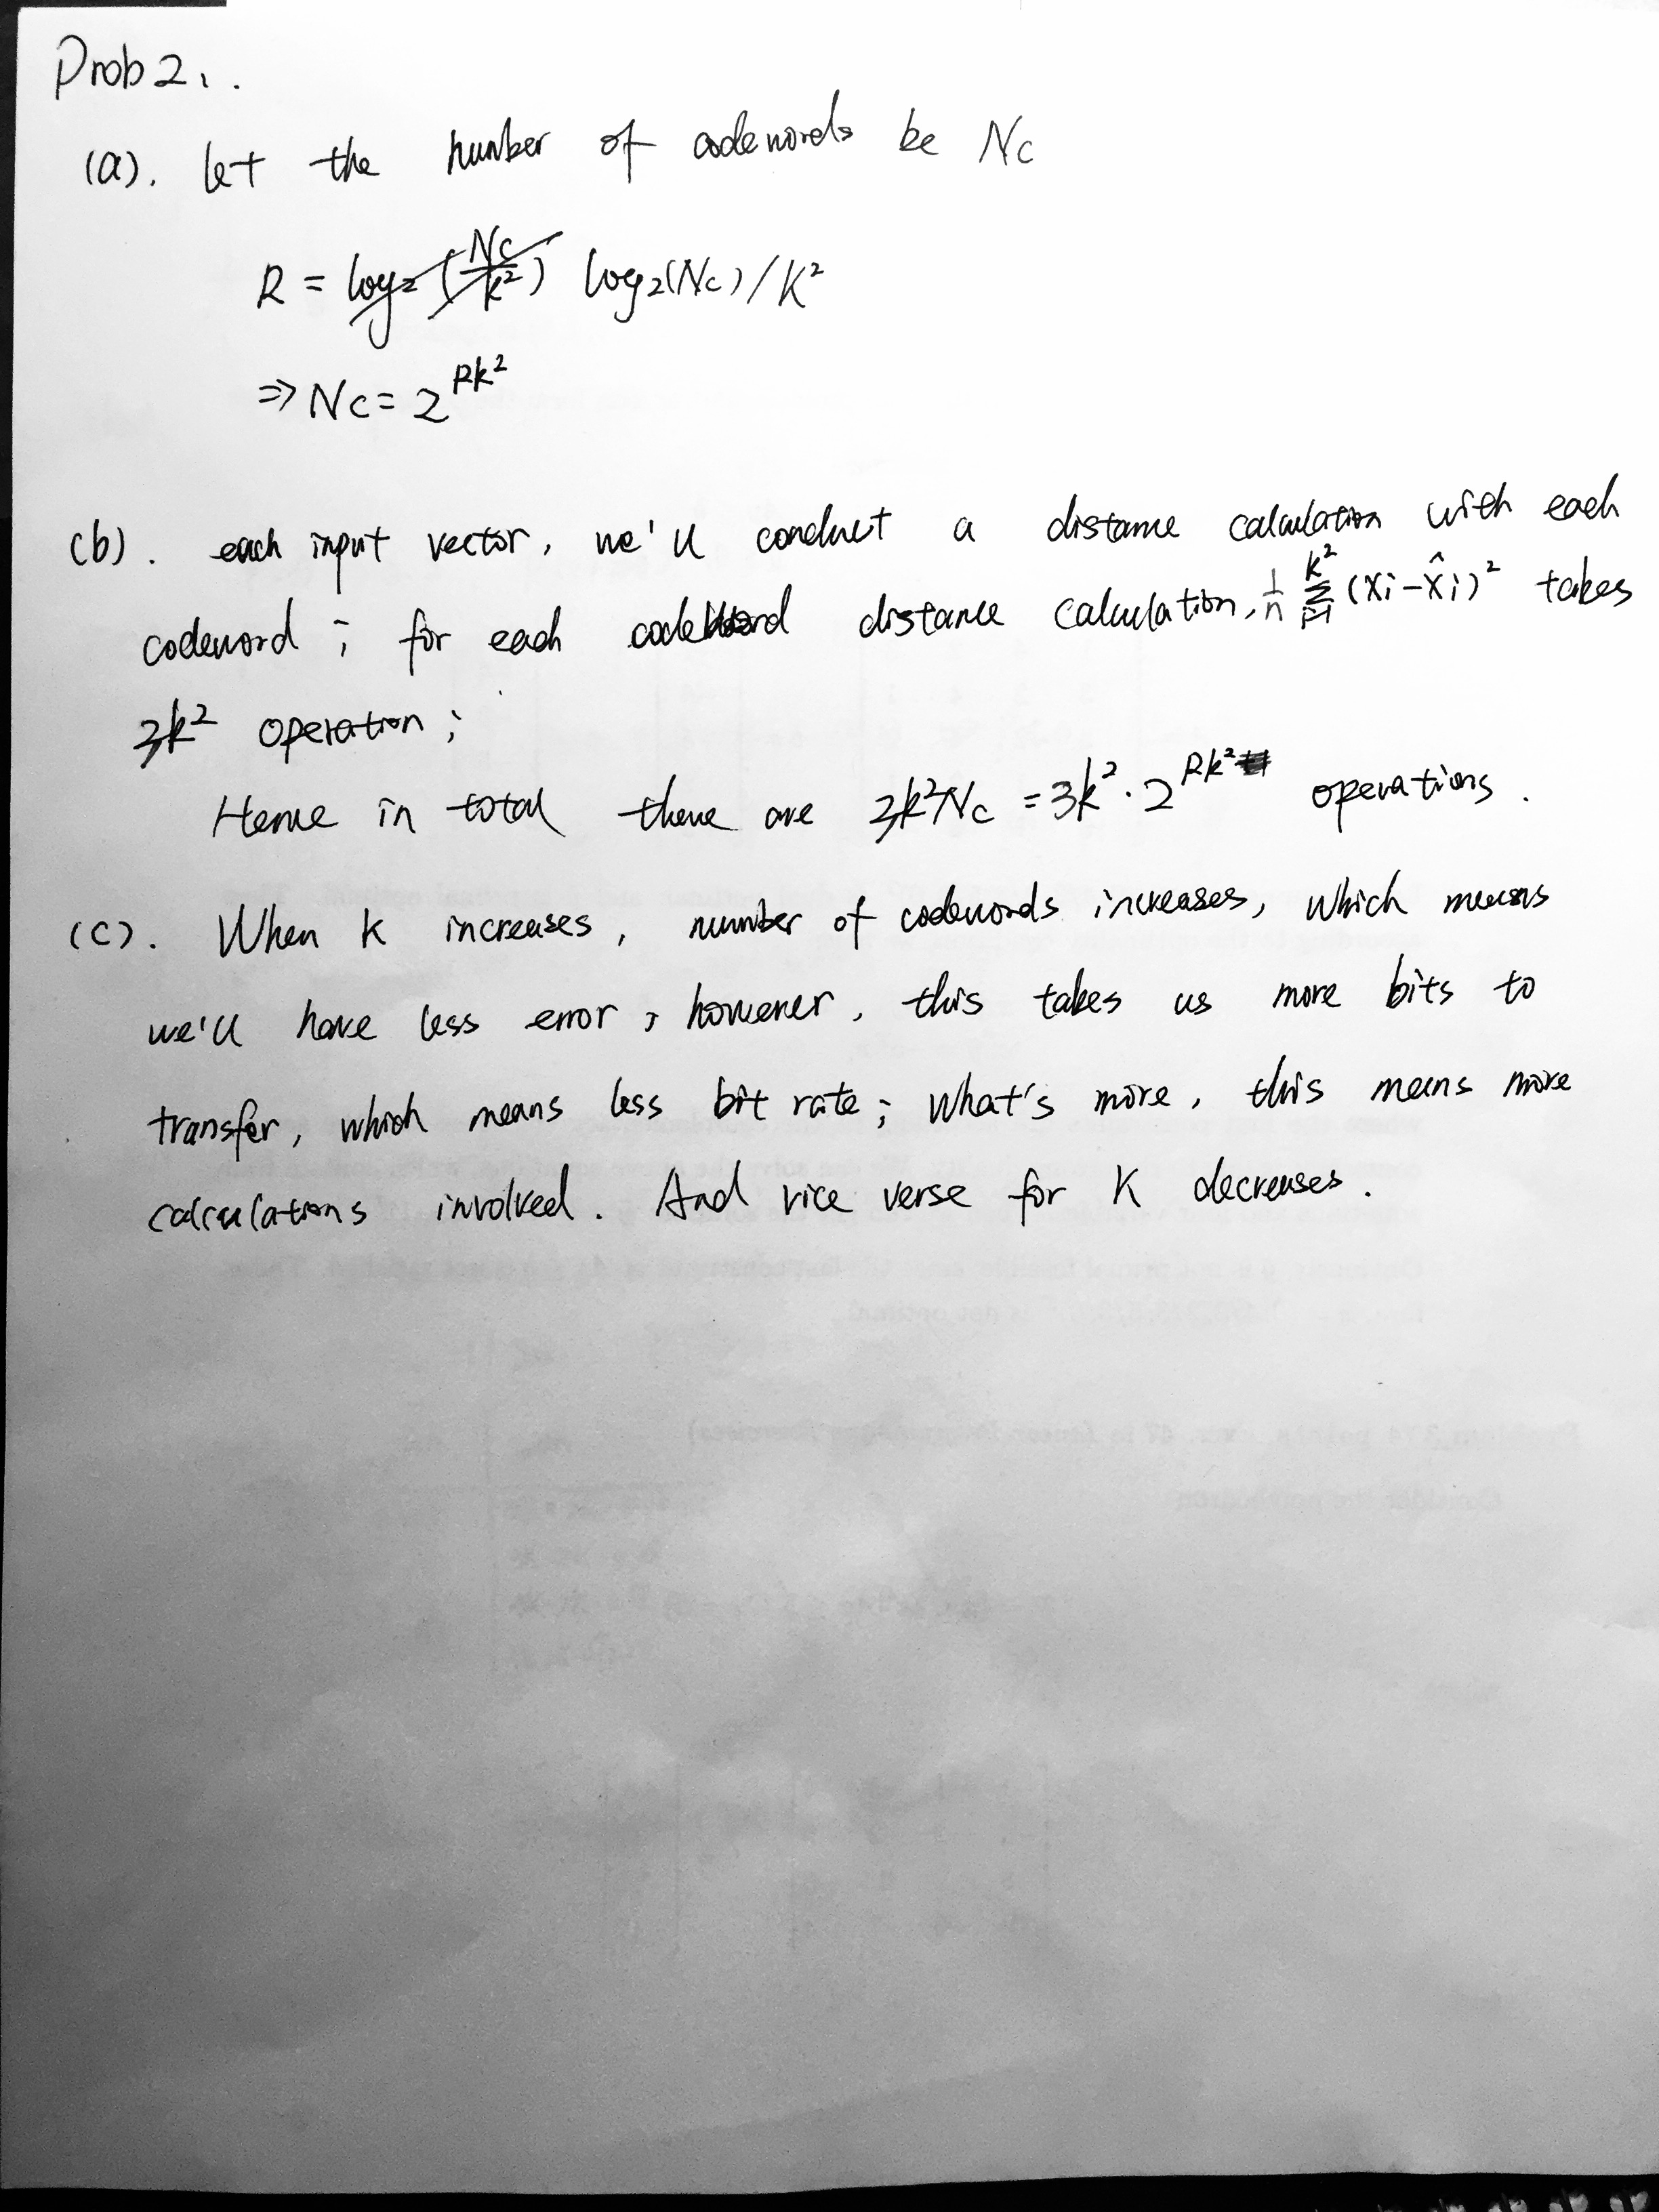 Prob 2.
(a). let the number of codewords be Nc
R = log₂(Nc/k²) log₂(Nc)/K²
⇒ Nc = 2^{Rk²}
(b). each input vector, we'll conduct a distance calculation with each
codeword; for each codeword distance calculation, 1/n Σ_{i=1}^{k²} (xi - x̂i)² takes
3k² operation;
Hence in total there are 3k²Nc = 3k² · 2^{Rk²} operations.
(c). When K increases, number of codewords increases, which means
we'll have less error, however, this takes us more bits to
transfer, which means less bit rate; what's more, this means more
calculations involved. And vice verse for K decreases.